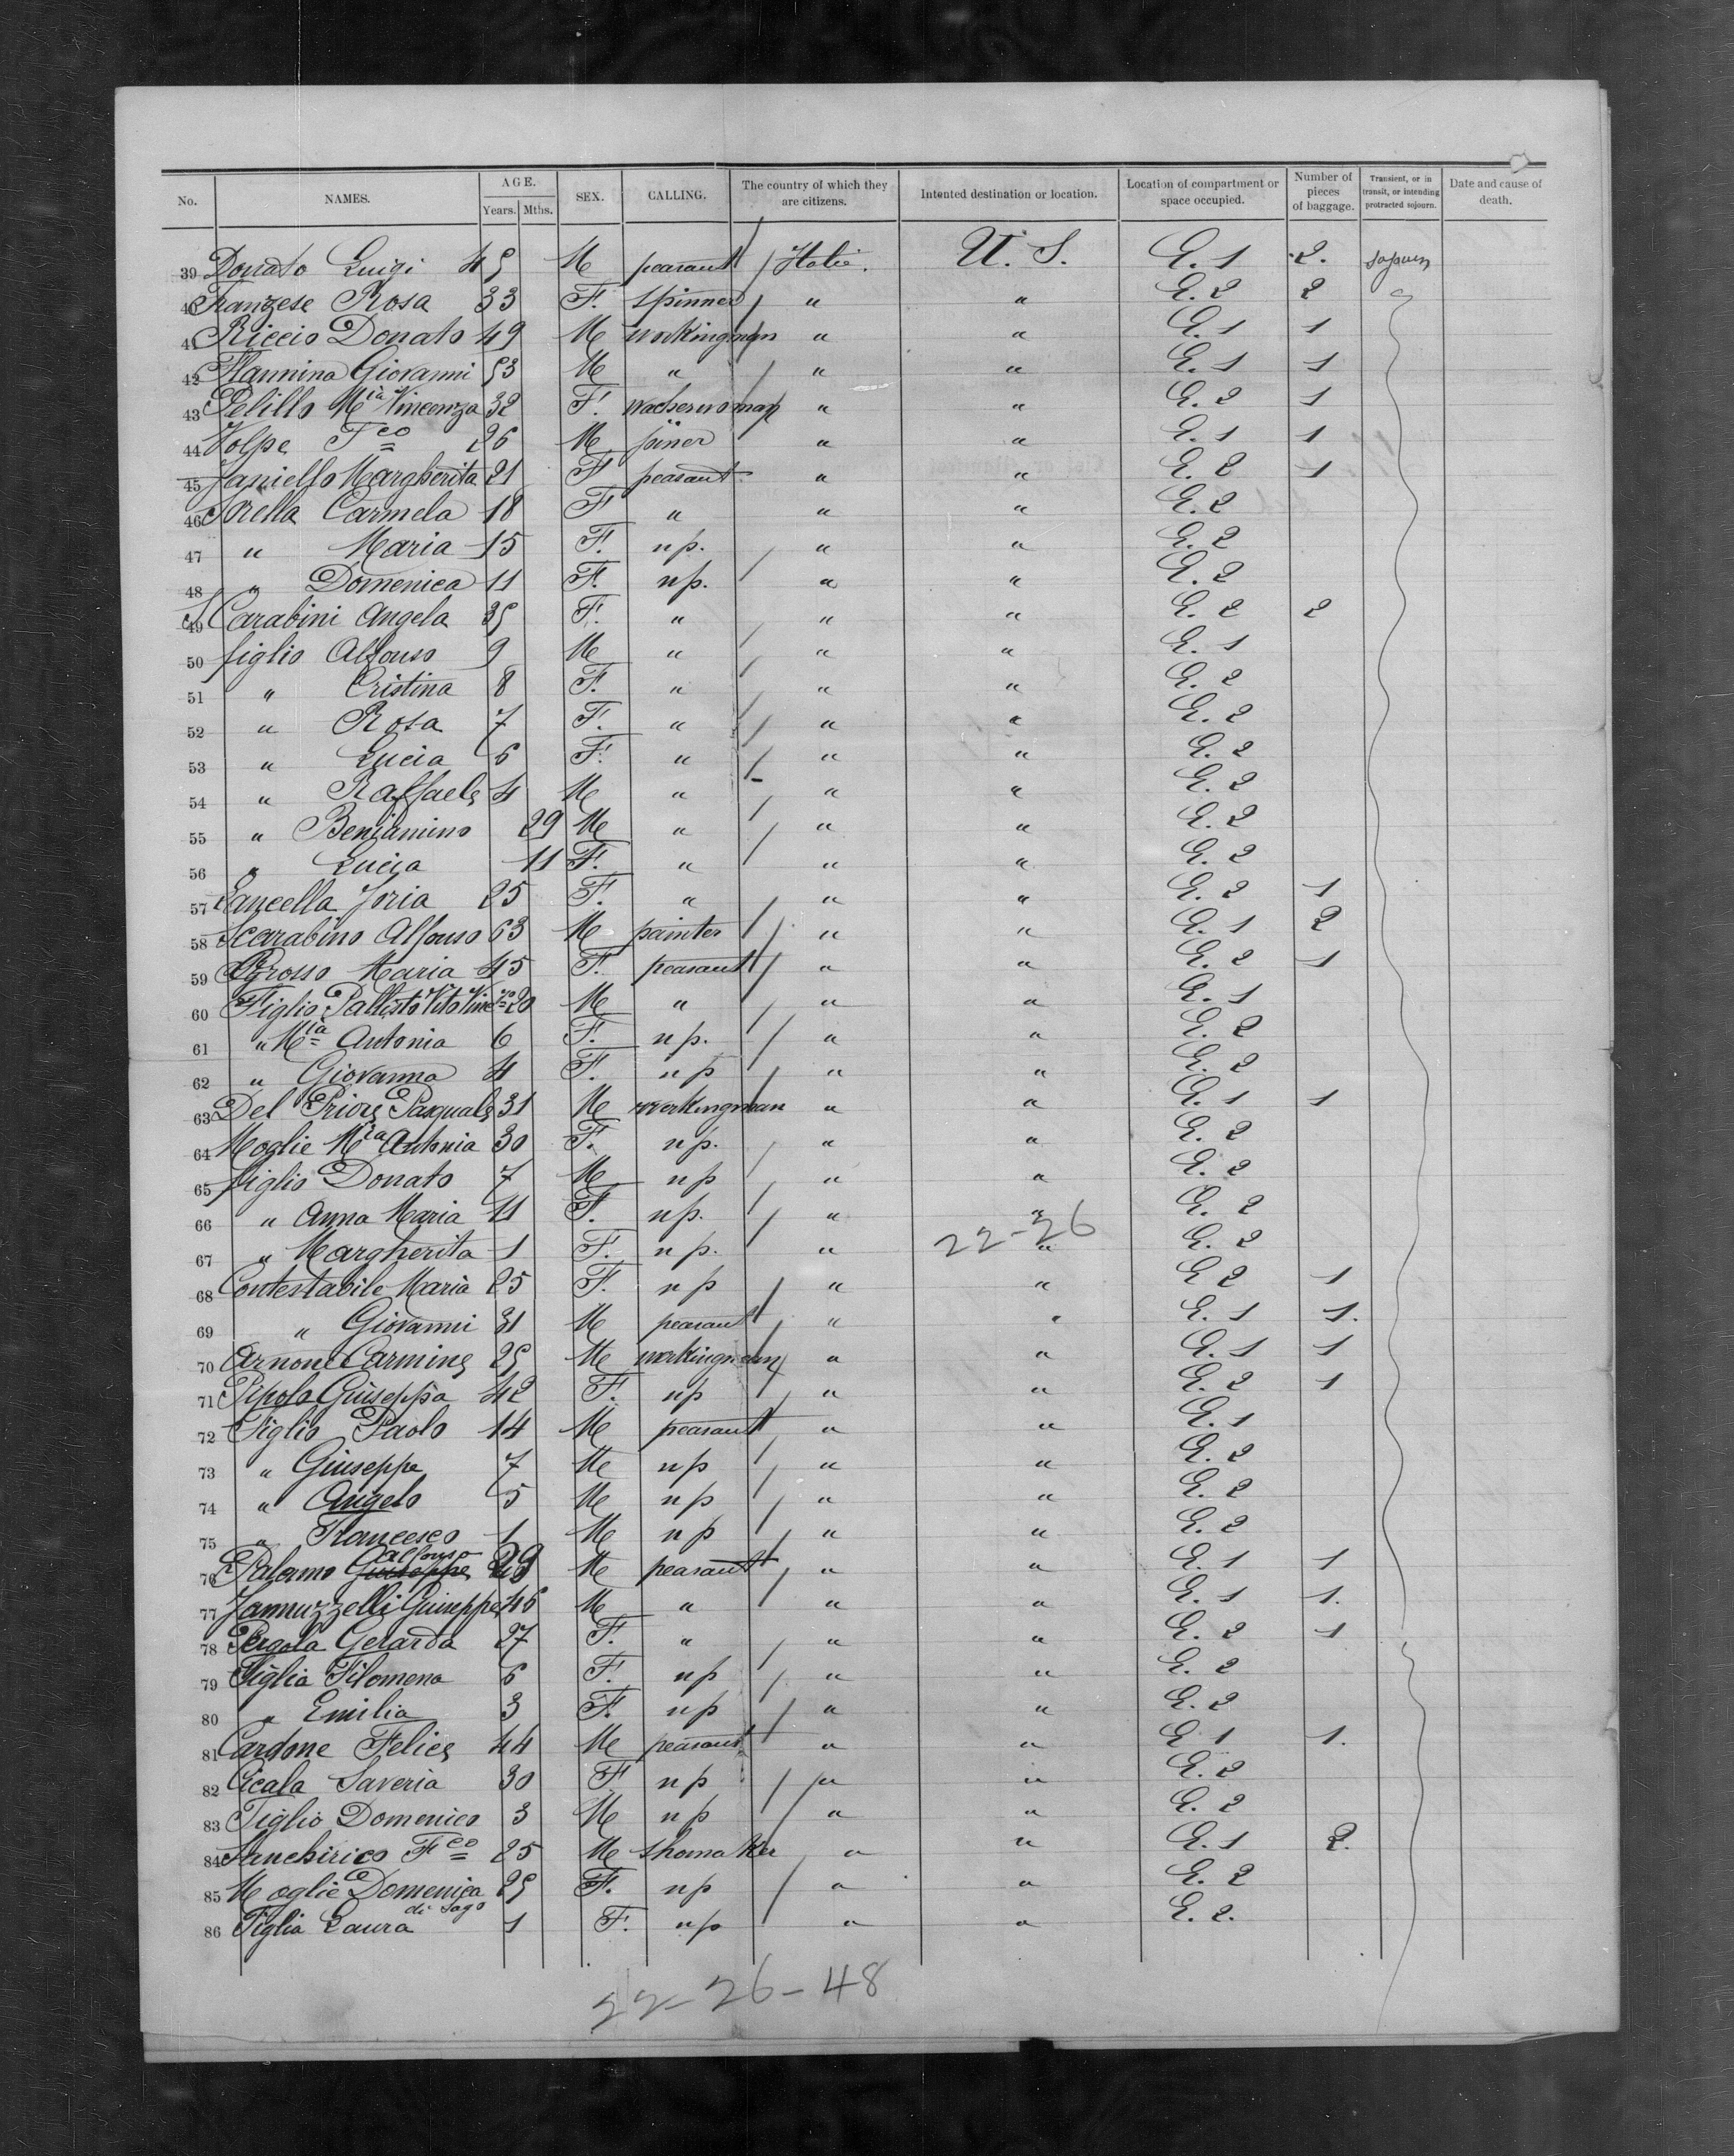 No. NAMES. AGE. Years. Mths. SEX. CALLING. The country of which they are citizens. Intented destination or location. Location of compartment or space occupied. Number of pieces of baggage. Transient, or in transit, or intending protracted sojourn. Date and cause of death.
39 Donato Luigi 45 M peasant Italie. U. S. E. 1 2.
40 Franzese Rosa 33 F. spinner " " E. 2 2
41 Riccio Donato 49 M workingman " " E. 1 1
42 Giovanni 53 M " " " E. 1 1
43 Pelillo Mia Vincenza 32 F. wacherwoman " " E. 2 1
44 Volpe Fco 26 M joiner " " E. 1 1
45 Janiello Margherita 21 F peasant " " E. 2 1
46 Sorella Carmela 18 F " " " E. 2
47 " Maria 15 F. np. " " E. 2
48 " Domenica 11 F. np. " " E. 2
49 S Carabini Angela 35 F. " " " E. 2 2
50 figlio Alfonso 9 M " " " E. 1
51 " Cristina 8 F. " " " E. 2
52 " Rosa 7 F. " " " E. 2
53 " Lucia 6 F. " " " E. 2
54 " Raffaele 4 M " " " E. 2
55 " Benjamino 29 M " " " E. 2
56 " Lucia 11 F. " " " E. 2
57 Lancella Joria 25 F. " " " E. 2 1
58 Scarabino Alfonso 63 M painter " " E. 1 2
59 Grosso Maria 45 F. peasant " " E. 2 1
60 Figlio Vito 20 M " " " E. 1
61 " Mia Antonia 6 F. np. " " E. 2
62 " Giovanna 4 F. np " " E. 2
63 Del Priore Pasquale 31 M workingman " " E. 1 1
64 Moglie Mia Antonia 30 F. np. " " E. 2
65 figlio Donato 7 M np " " E. 2
66 " Anna Maria 11 F. np. " " E. 2
67 " Margherita 1 F. np. " 22-26 " E. 2
68 Contestabile Maria 25 F. np " " E 2 1
69 " Giovanni 31 M peasant " " E. 1 1.
70 Arnone Carmine 25 M workingman " " E. 1 1
71 Pipola Giuseppa 42 F. np " " E. 2 1
72 Figlio Paolo 14 M peasant " " E. 1
73 " Giuseppe 7 M np " " E. 2
74 " Angelo 5 M np " " E. 2
75 " Francesco 1 M np " " E. 2
76 Palamo Giuseppe Alfonso 29 M peasant " " E. 1 1
77 Jannuzzelli Giuseppe 46 M " " " E. 1 1.
78 Pergola Gerarda 27 F. " " " E. 2 1
79 Figlia Filomena 6 F. np " " E. 2
80 " Emilia 3 F. np " " E. 2
81 Cardone Felice 44 M peasant " " E 1 1.
82 Cicala Saveria 30 F np " " E. 2
83 Figlio Domenico 3 M np " " E. 2
84 Sanchirico Fco 25 M shomaker " " E. 1 2.
85 Moglie Domenica di Sago 25 F. np " " E. 2
86 Figlia Laura 1 F. np " " E. 2.
22-26-48